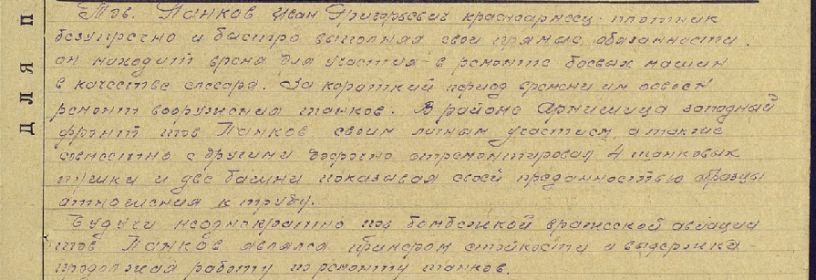 Тов. Панков Иван Григорьевич красноармеец-плотник
безупречно и быстро выполняя свои прямые обязанности
он находит время для участия в ремонте боевых машин
в качестве слесаря. За короткий период времени им освоен
ремонт вооружения танков. В районе западный
фронт тов Панков своим личным участием а также
совместно с другими досрочно отремонтировал 4 танковых
пушки и две башни показывая своей преданностью образцы
отношения к труду.
Будучи неоднократно под бомбежкой вражеской авиации
тов Панков являлся примером стойкости и выдержки
продолжая работу по ремонту танков.
ДЛЯ П